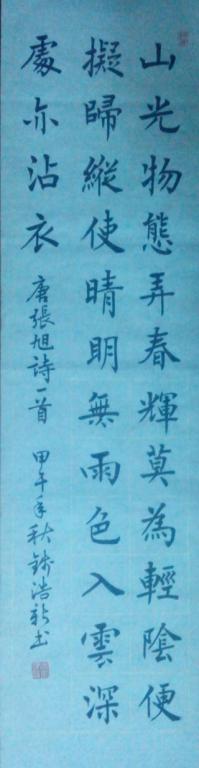 山光物態弄春輝莫為輕陰便
擬歸縱使晴明無雨色入雲深
處亦沾衣
唐張旭詩一首 甲午年秋 浩新書